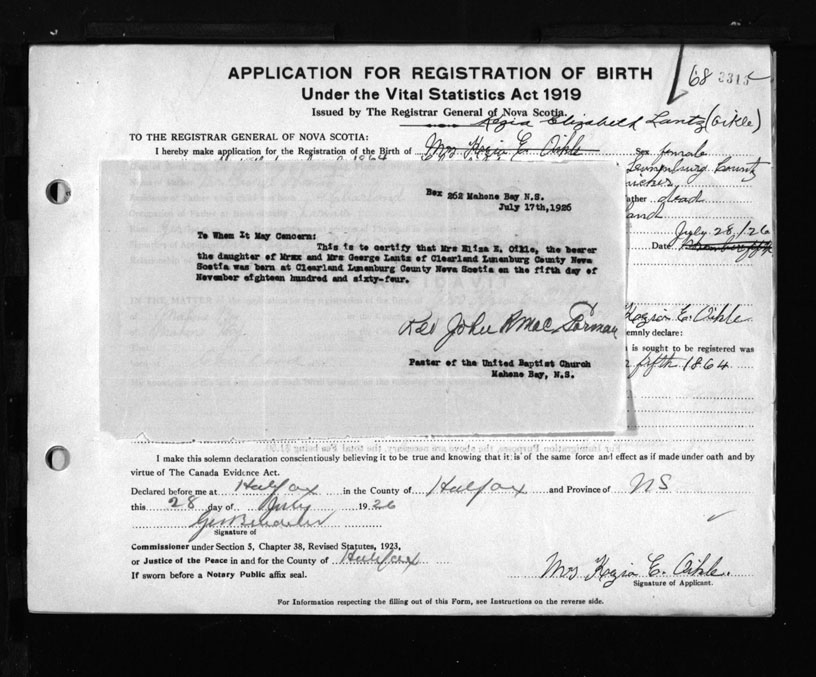 APPLICATION FOR REGISTRATION OF BIRTH
68 3313
Under the Vital Statistics Act 1919
Issued by The Registrar General of Nova Scotia.
Kezia Elizabeth Lantz (Oikle)
TO THE REGISTRAR GENERAL OF NOVA SCOTIA:
I hereby make application for the Registration of the Birth of Mrs Kezia E. Oikle Sex female
Lunenburg County
Father dead
July 28, 126
Date
Box 262 Mahone Bay N.S.
July 17th,1926
To Whom It May Concern:
This is to certify that Mrs Eliza K. Oikle, the bearer
the daughter of Mrxx and Mrs George Lantz of Clearland Lunenburg County Nova
Scotia was born at Clearland Lunenburg County Nova Scotia on the fifth day of
November eighteen hundred and sixty-four.
Rev John R Mac Gorman
Pastor of the United Baptist Church
Mahone Bay, N.S.
Kezia E. Oikle
emnly declare:
is sought to be registered was
fifth 1864
I make this solemn declaration conscientiously believing it to be true and knowing that it is of the same force and effect as if made under oath and by
virtue of The Canada Evidence Act.
Declared before me at Halifax in the County of Halifax and Province of NS
this 28 day of July 1926
Signature of
Commissioner under Section 5, Chapter 38, Revised Statutes, 1923,
or Justice of the Peace in and for the County of Halifax
If sworn before a Notary Public affix seal.
Mrs Kezia E. Oikle.
Signature of Applicant.
For Information respecting the filling out of this Form, see Instructions on the reverse side.